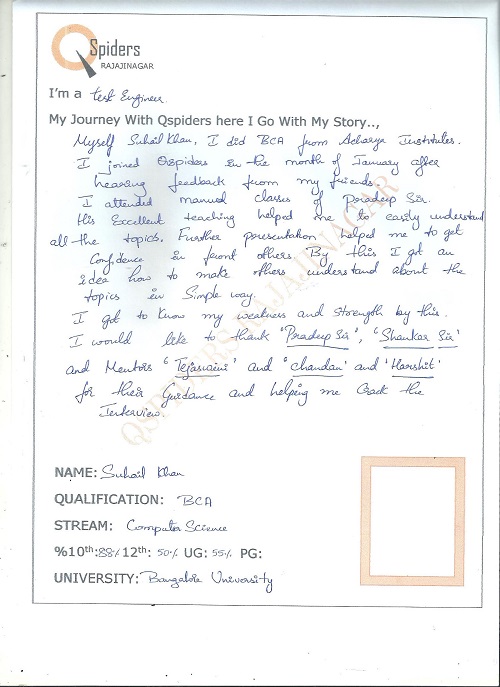 QSpiders
RAJAJINAGAR
I'm a test Engineer
My Journey With Qspiders here I Go With My Story..,
Myself Suhail Khan, I did BCA from Acharya Institutes.
I joined Qspiders in the month of January after
hearing feedback from my friends.
I attended manual classes of Pradeep Sir.
His Excellent teaching helped me to easily understand
all the topics. Further presentation helped me to get
Confidence in front others. By this I got an
idea how to make others understand about the
topics in Simple way.
I got to know my weakness and strength by this.
I would like to thank "Pradeep Sir", "Shankar Sir"
and Mentors "Tejaswini" and "chandan" and "Harshit"
for their Guidance and helping me Crack the
Interview.
QSPIDERS RAJAJINAGAR
NAME: Suhail Khan
QUALIFICATION: BCA
STREAM: Computer Science
%10th: 88% 12th: 50% UG: 55% PG:
UNIVERSITY: Bangalore University